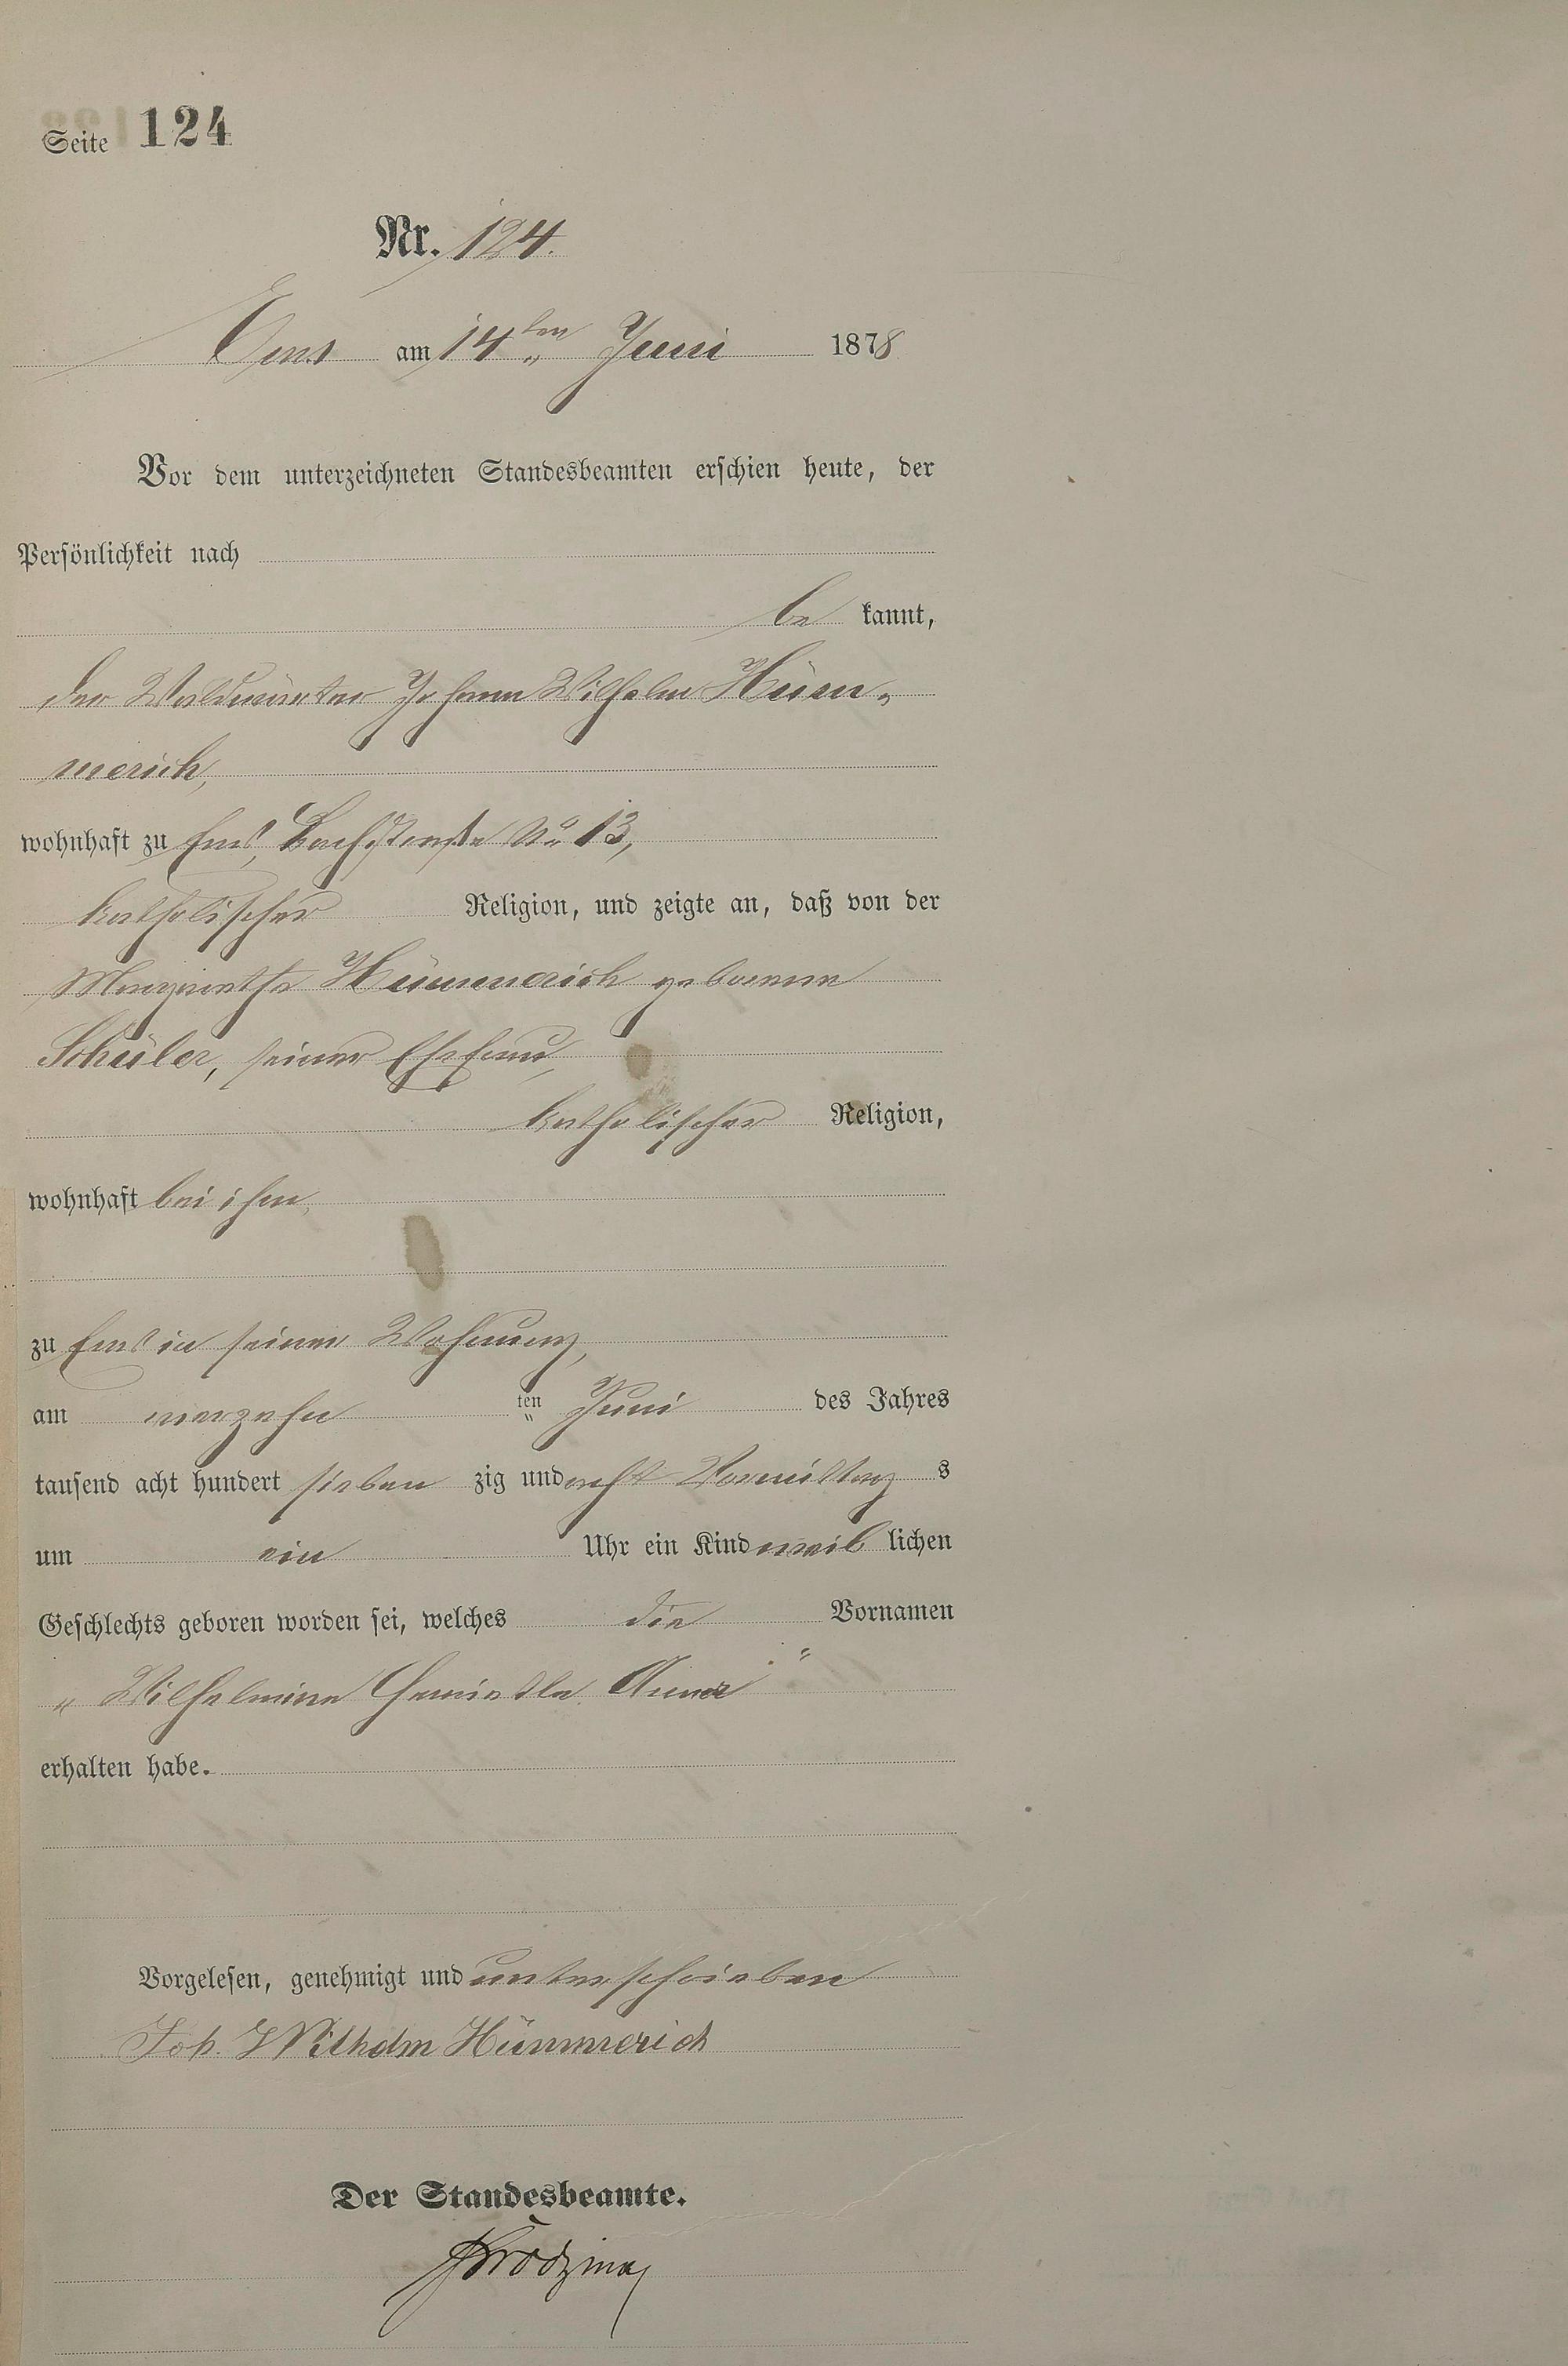 Seite 124
Nr. 124.
Ems am 14ten Juni 1878
Vor dem unterzeichneten Standesbeamten erschien heute, der
Persönlichkeit nach
be kannt,
der Waldwärter Johann Wilhelm Hüm„
merich,
wohnhaft zu Ems, Bachstraße No 13,
katholischer Religion, und zeigte an, daß von der
Margaretha Hümmerich geborene
Schüler, seiner Ehefrau,
katholischer Religion,
wohnhaft bei ihm,
zu Ems in seiner Wohnung,
am vierzehn ten Juni des Jahres
tausend acht hundert sieben zig und acht Vormittag s
um ein Uhr ein Kind weib lichen
Geschlechts geboren worden sei, welches die Vornamen
„ Wilhelmine Anna "
erhalten habe.
Vorgelesen, genehmigt und unterschrieben
Joh. Wilhelm Hümmerich
Der Standesbeamte.